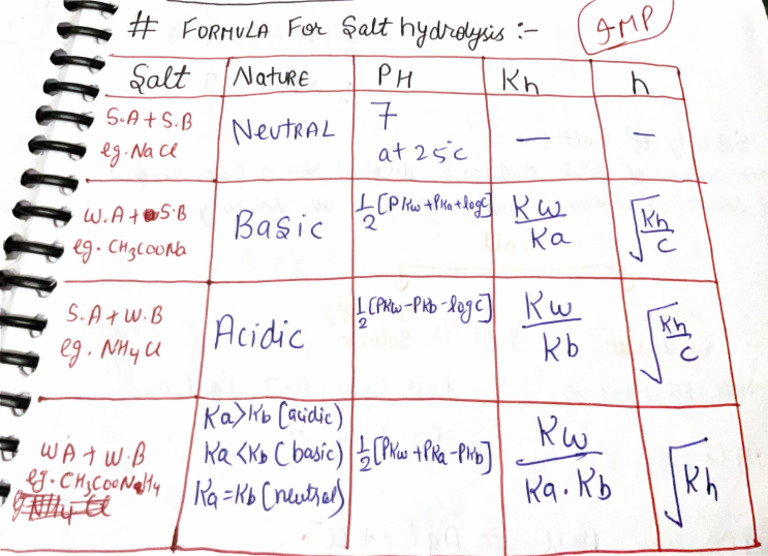 # FORMULA For Salt hydrolysis :-
IMP
Salt NATURE PH Kh h
S.A + S.B
eg. NaCl
NEUTRAL
7
at 25°C
—
—
W.A + S.B
eg. CH3COONa
Basic
1/2 [PKw + PKa + logC]
Kw/Ka
√Kh/C
S.A + W.B
eg. NH4Cl
Acidic
1/2 [PKw - PKb - logC]
Kw/Kb
√Kh/C
WA + W.B
eg. CH3COONH4
Ka>Kb (acidic)
Ka<Kb (basic)
Ka=Kb (neutral)
1/2 [PKw + PKa - PKb]
Kw/Ka.Kb
√Kh